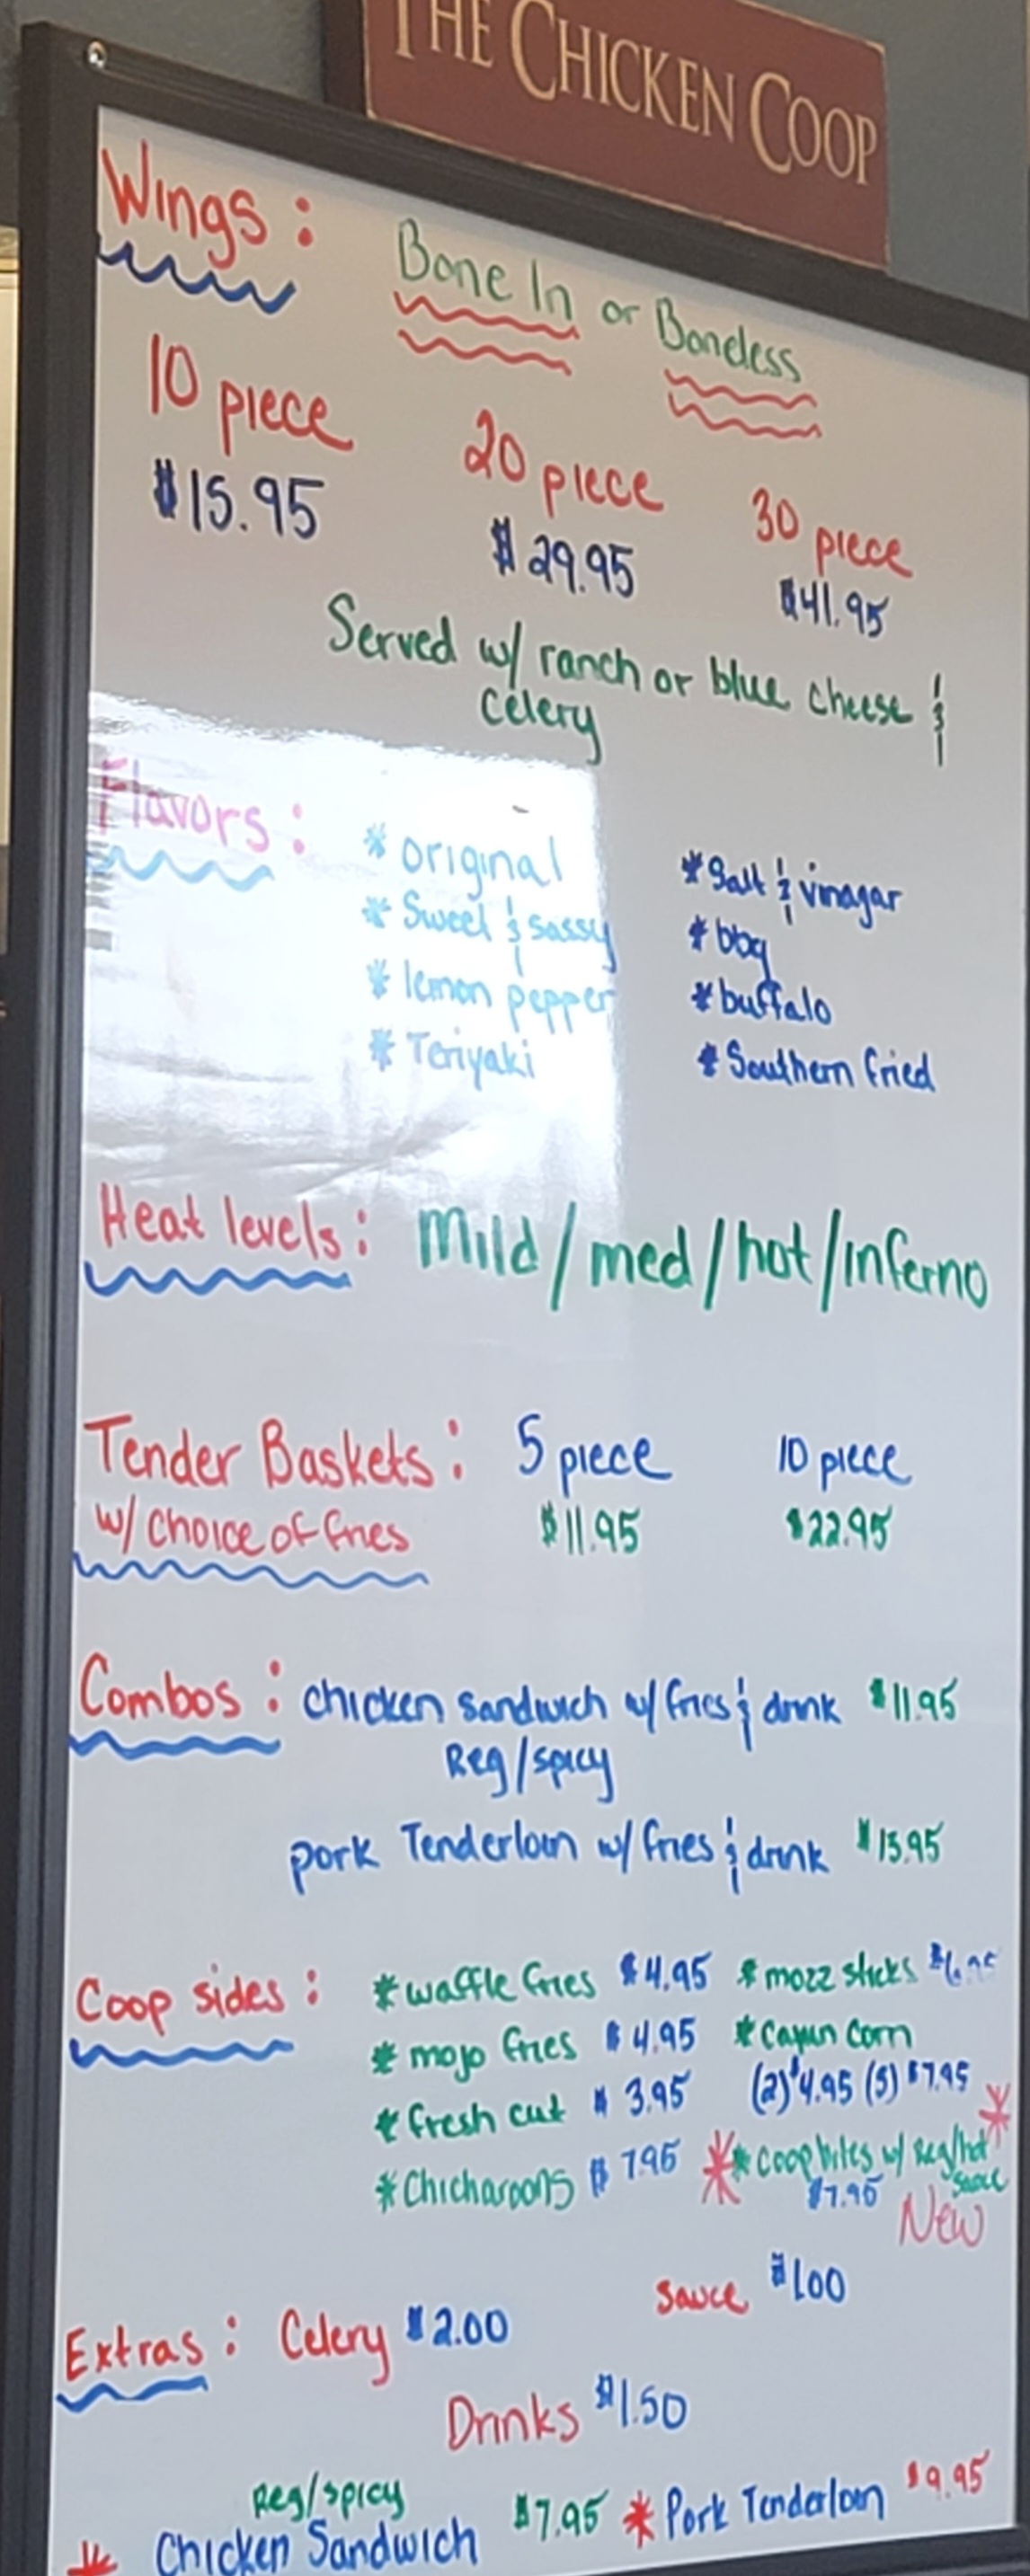 THE CHICKEN COOP
Wings:
Bone In or Boneless
10 piece 20 piece 30 piece
$15.95 $29.95 $41.95
Served w/ ranch or blue cheese &
celery
Flavors:
* original * Salt & vinagar
* Sweet & sassy * bbq
* lemon pepper * buffalo
* Teriyaki * Southern fried
Heat levels: Mild/med/hot/inferno
Tender Baskets: 5 piece 10 piece
w/ choice of fries $11.95 $22.95
Combos: chicken sandwich w/ fries & drink $11.95
Reg/spicy
pork Tenderloin w/ fries & drink $13.95
Coop sides: * waffle fries $4.95 * mozz sticks
* mojo fries $4.95 * cajun corn
* fresh cut $3.95 (2) $4.95 (5) $7.95
* Chicharoons $7.95 * Coop bites w/ Reg/hot
sauce
$7.95 New
Sauce $1.00
Extras: Celery $2.00
Drinks $1.50
Reg/spicy
* Chicken Sandwich $7.95 * Pork Tenderloin $9.95